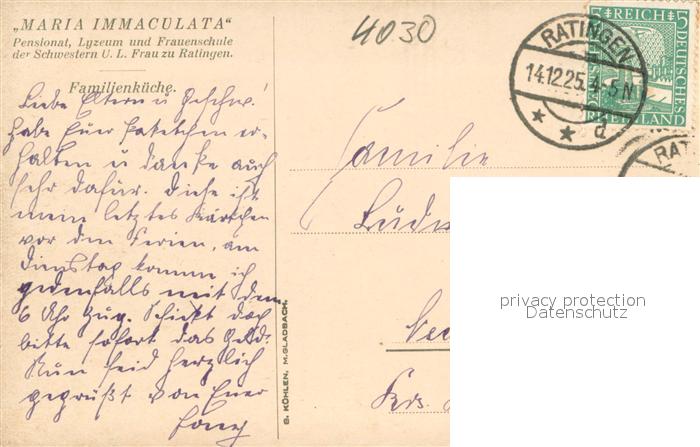 „MARIA IMMACULATA“
Pensionat, Lyzeum und Frauenschule
der Schwestern U. L. Frau zu Ratingen.
Familienküche.
4030
Liebe Eltern u Geschw!
habe Euer Paketchen er-
halten u danke auch
sehr dafür. Diese ist
mein letztes Kärtchen
vor den Ferien, am
Dienstag komme ich
jedenfalls mit dem
6 Uhr Zug. Schickt doch
bitte sofort das Geld.
Nun seid herzlich
gegrüßt von Eurer
RATINGEN
14.12.25. 4-5 N
* * d
5 REICH 5
DEUTSCHES
RHEINLAND
RATI
Familie
Ludw
Krs.
G. KÜHLEN, M.GLADBACH.
privacy protection
Datenschutz